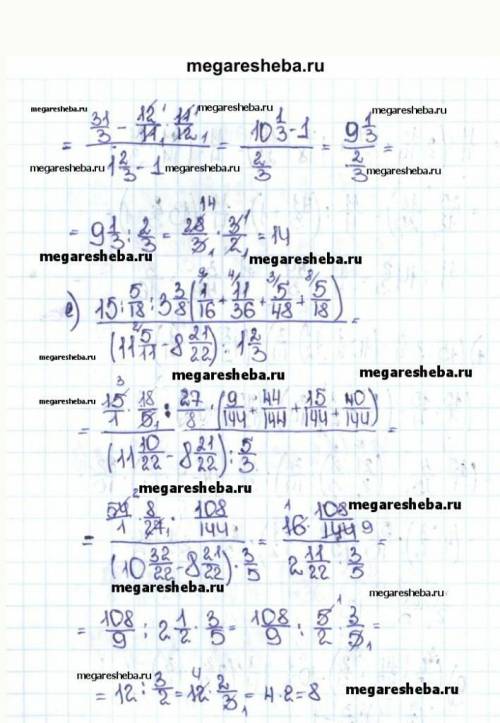 megaresheba.ru
megaresheba.ru megaresheba.ru
= (31/3 - 12/11 · 11/12) / (1 2/3 - 1) = (10 1/3 - 1) / (2/3) = (9 1/3) / (2/3) =
megaresheba.ru megaresheba.ru megaresheba.ru
14
= 9 1/3 : 2/3 = 28/3 · 3/2 = 14
megaresheba.ru megaresheba.ru
е) (15 : 5/18 : 3 3/8 (1/16 + 11/36 + 5/48 + 5/18)) / ((11 5/11 - 8 21/22) : 1 2/3) =
megaresheba.ru
megaresheba.ru megaresheba.ru
= (15/1 · 18/5 : 27/8 · (9/144 + 44/144 + 15/144 + 40/144)) / ((11 10/22 - 8 21/22) : 5/3) =
megaresheba.ru
= (54/1 · 8/27 · 108/144) / ((10 32/22 - 8 21/22) · 3/5) = (16 · 108/144) / (2 11/22 · 3/5) =
megaresheba.ru
megaresheba.ru megaresheba.ru
= 108/9 : 2 1/2 · 3/5 = 108/9 : 5/2 · 3/5 =
megaresheba.ru
= 12 : 3/2 = 12 · 2/3 = 4 · 2 = 8
megaresheba.ru megaresheba.ru